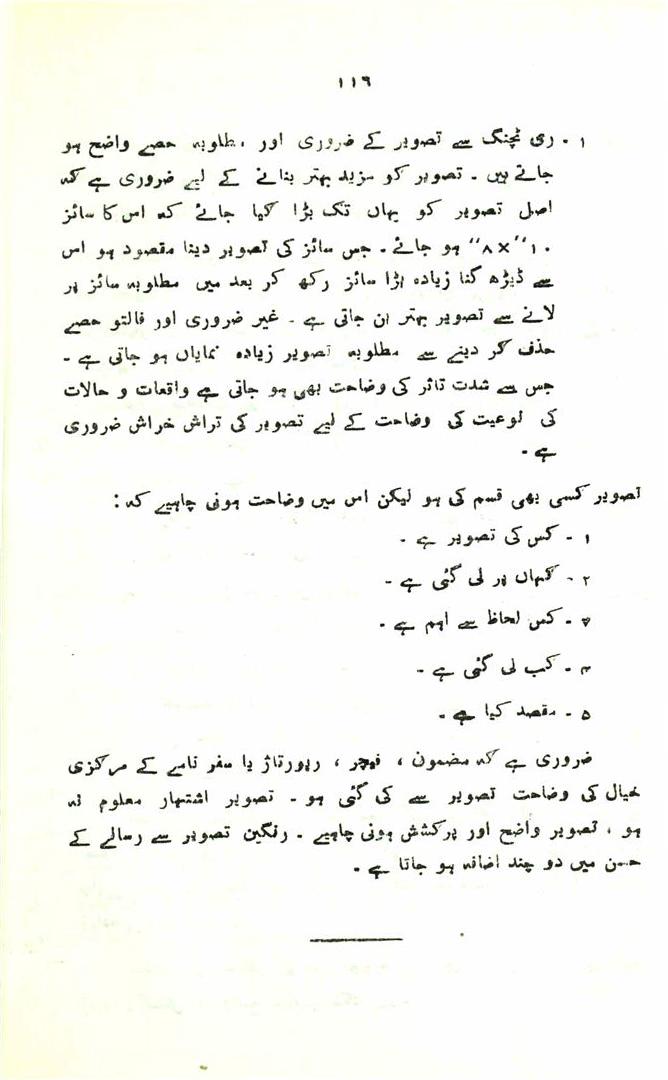 ۱۱۶
۱ - ری ٹچنگ سے تصویر کے ضروری اور مطلوبہ حصے واضح ہو
جاتے ہیں - تصویر کو مزید بہتر بنانے کے لیے ضروری ہے کہ
اصل تصویر کو یہاں تک بڑا کیا جائے کہ اس کا سائز
۱۰" × ۸" ہو جائے - جس سائز کی تصویر دینا مقصود ہو اس
سے ڈیڑھ گنا زیادہ بڑا سائز رکھ کر بعد میں مطلوبہ سائز پر
لانے سے تصویر بہتر بن جاتی ہے - غیر ضروری اور فالتو حصے
حذف کر دینے سے مطلوبہ تصویر زیادہ نمایاں ہو جاتی ہے -
جس سے شدت تاثر کی وضاحت بھی ہو جاتی ہے واقعات و حالات
کی نوعیت کی وضاحت کے لیے تصویر کی تراش خراش ضروری
ہے -
تصویر کسی بھی قسم کی ہو لیکن اس میں وضاحت ہونی چاہیے کہ :
۱ - کس کی تصویر ہے -
۲ - کہاں پر لی گئی ہے -
۳ - کس لحاظ سے اہم ہے -
۴ - کب لی گئی ہے -
۵ - مقصد کیا ہے -
ضروری ہے کہ مضمون ، فیچر ، رپورتاژ یا سفر نامے کے مرکزی
خیال کی وضاحت تصویر سے کی گئی ہو - تصویر اشتہار معلوم نہ
ہو ، تصویر واضح اور پرکشش ہونی چاہیے - رنگین تصویر سے رسالے کے
حسن میں دو چند اضافہ ہو جاتا ہے -